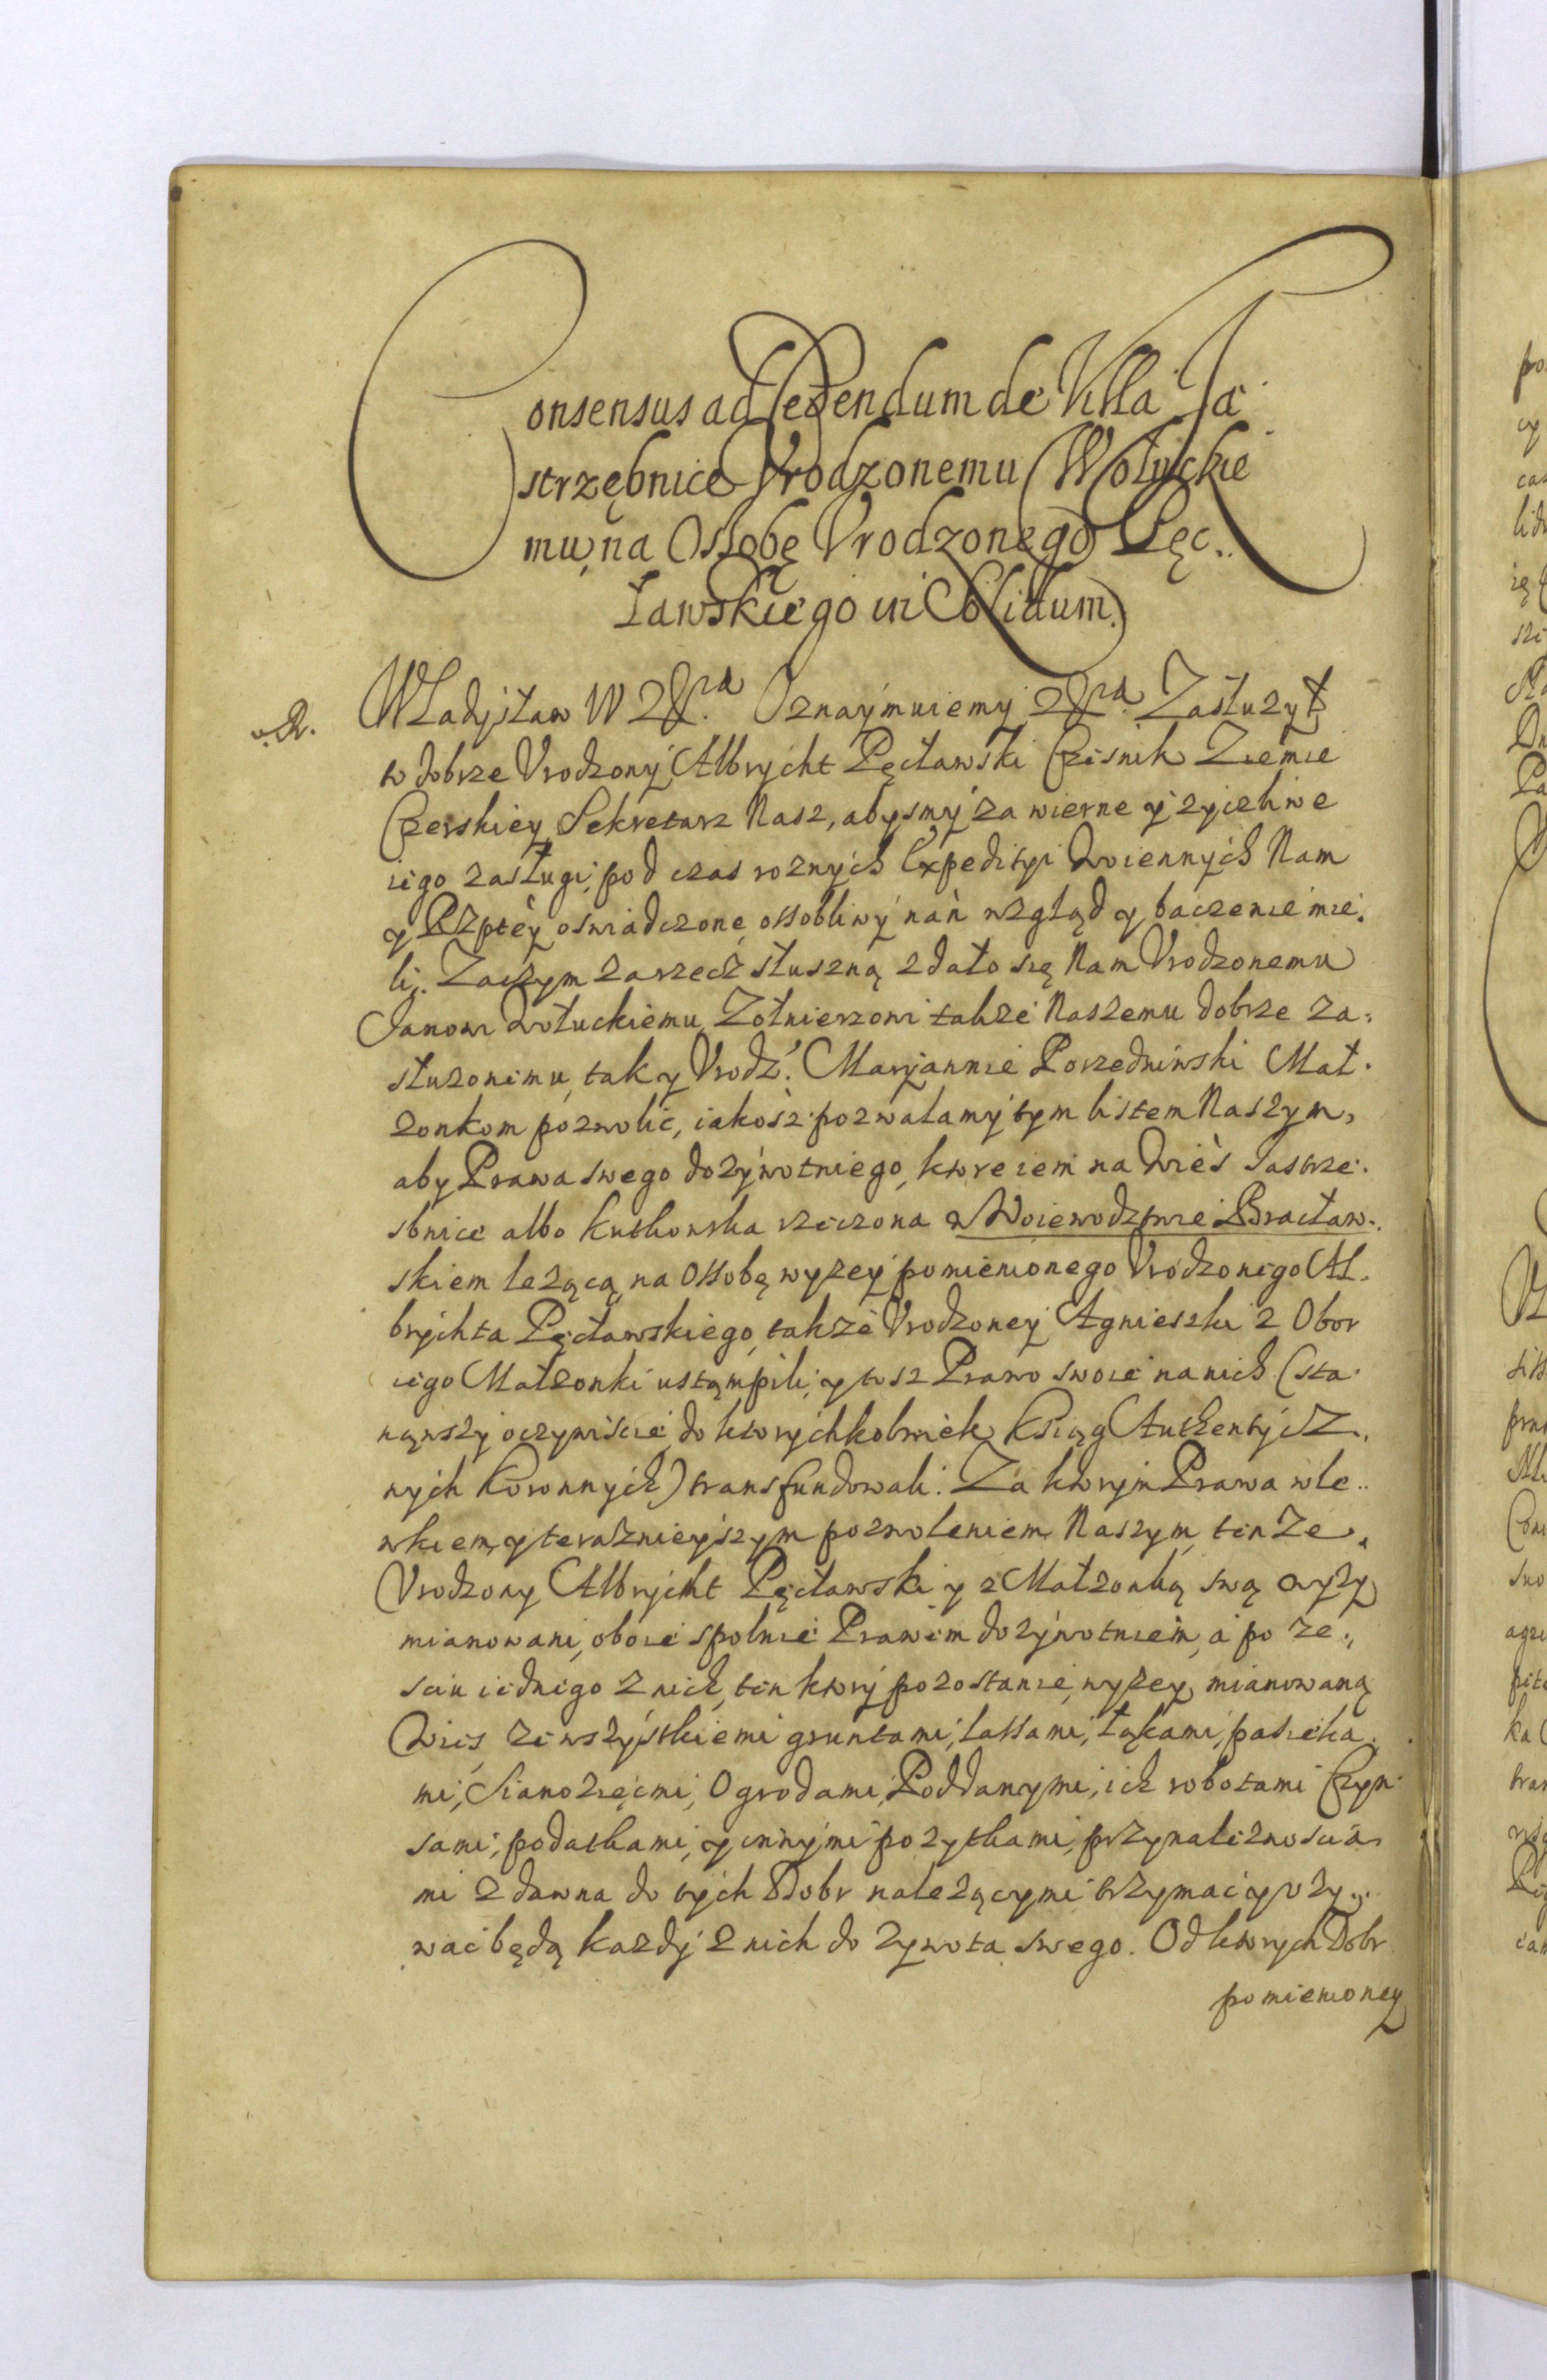 Consensus ad cedendum de Villa Ja
strzębnice Vrodzonemu Wołyckie
mu, na Ossobę Vrodzonego Pęc..
ławskiego in Solidum.
Władysław IV z &ra. Oznaymuiemy z &ra. Zasłużył
to dobrze Vrodzony Albrycht Pęcławski Cześnik Ziemie
Czerskiey Sekretarz Nasz, abysmy za wierne y życzliwe
iego zasługi, pod czas roznych Expedityi Woiennych Nam
y Rzptey oswiadczone, ossobliwy nań wzgląd y baczenie mie.
li. Zaczym za rzecz słuszną zdało się Nam Vrodzonemu
Janowi Wołuckiemu Zołnierzowi także Naszemu dobrze za.
służonemu, tak y Vrodz. Maryannie Porzedninski Mał.
żonkom pozwolić, iakosz pozwalamy tym listem Naszym,
aby Prawa swego dożywotniego, ktore iem na Wieś Jastrze.
sbnice albo Kutkowska rzeczona w Woiewodztwie Bracław.
skiem leżącą na Ossobę wyżey pomienionego Vrodzonego Al.
brychta Pęcławskiego, także Vrodzoney Agnieszki z Obor
iego Małżonki ustąmpili, y tosz Prawo swoie na nich (sta.
nąwszy oczywiście, do ktorychkolwiek Ksiąg Authentycz.
nych Koronnych) transfundowali. Za ktorym Prawa wle..
wkiem, y teraznieyszym pozwoleniem Naszym, tenże.
Vrodzony Albrycht Pęcławski y z Małżonką swą wyży
mianowani, oboie spolnie Prawem dożywotniem, a po ze.,
sciu iednego z nich, ten ktory pozostanie, wyżey mianowaną
Wieś ze wszystkiemi gruntami, lassami, łąkami, pasieka.
mi, Sianożęćmi, Ogrodami, Poddanymi, ich robotami Czyn.
sami, podatkami, y innymi pożytkami, przynależnościa.
mi z dawna do tych Dobr należącymi trzymać y uży..
wać będą każdy z nich do żywota swego. Od ktorych Dobr
pomienioney